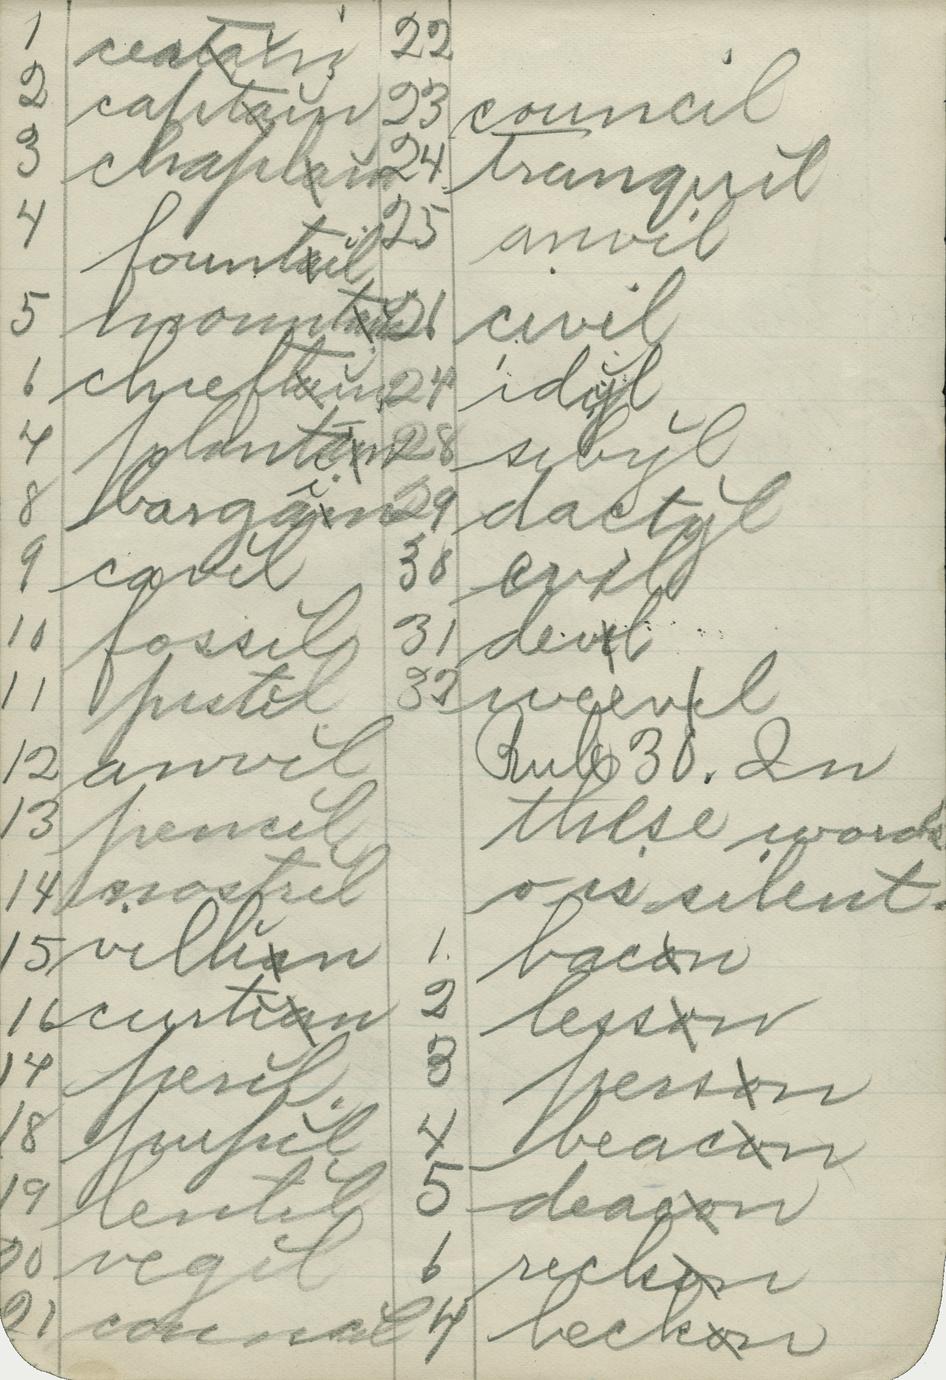 1 certain
2 captain
3 chaplain
4 fountail
5 mountain
6 chieftain
7 plantain
8 bargain
9 cavil
10 fossil
11 pistil
12 anvil
13 pencil
14 nostril
15 villian
16 curtian
17 peril.
18 pupil
19 lentil
20 vegil
21
22
23 council
24. tranquil
25 anvil
26 civil
27 idyl
28 sibyl
29 dactyl
30 evil
31 devil
32 weevil
Rule 30. In
these words
o is silent.
1. bacon
2 lesson
3 person
4 beacon
5 deacon
6 reckon
7 beckon